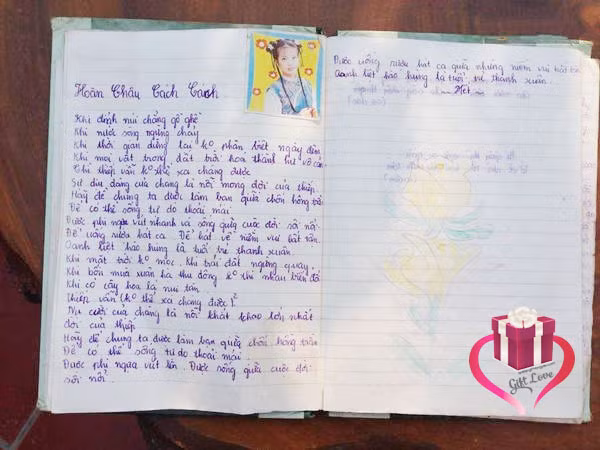 Hoàn Châu Cách Cách
Khi đỉnh núi chẳng gồ ghề
Khi nước sông ngừng chảy
Khi thời gian dừng lại ko phân biệt ngày đêm
Khi mọi vật trong đất trời hoá thành hư vô
Thì thiếp vẫn ko thể xa chàng được
Sự dịu dàng của chàng là nỗi mong đợi của thiếp
Hãy để chúng ta được làm bạn giữa chốn hồng trần
Để có thể sống tự do thoải mái
Được phi ngựa vút nhanh và sống giữa cuộc đời sôi nổi
Để uống rượu hát ca. Để hát về niềm vui bất tận
Oanh liệt hào hùng là tuổi trẻ thanh xuân
Khi mặt trời ko mọc. Khi trái đất ngừng quay
Khi bốn mùa xuân hạ thu đông ko thể nhau biến đổi
Khi cỏ cây hoa lá núi tàn
Thiếp vẫn ko thể xa chàng được
Nụ cười của chàng là nỗi khát khao lớn nhất
đời của thiếp
Hãy để chúng ta được làm bạn giữa chốn hồng trần
Để có thể sống tự do thoải mái
Được phi ngựa vút lên. Được sống giữa cuộc đời
sôi nổi
Được uống rượu hát ca giữa những niềm vui bất tận
Oanh liệt hào hùng là tuổi trẻ thanh xuân
Hết
Gift Love